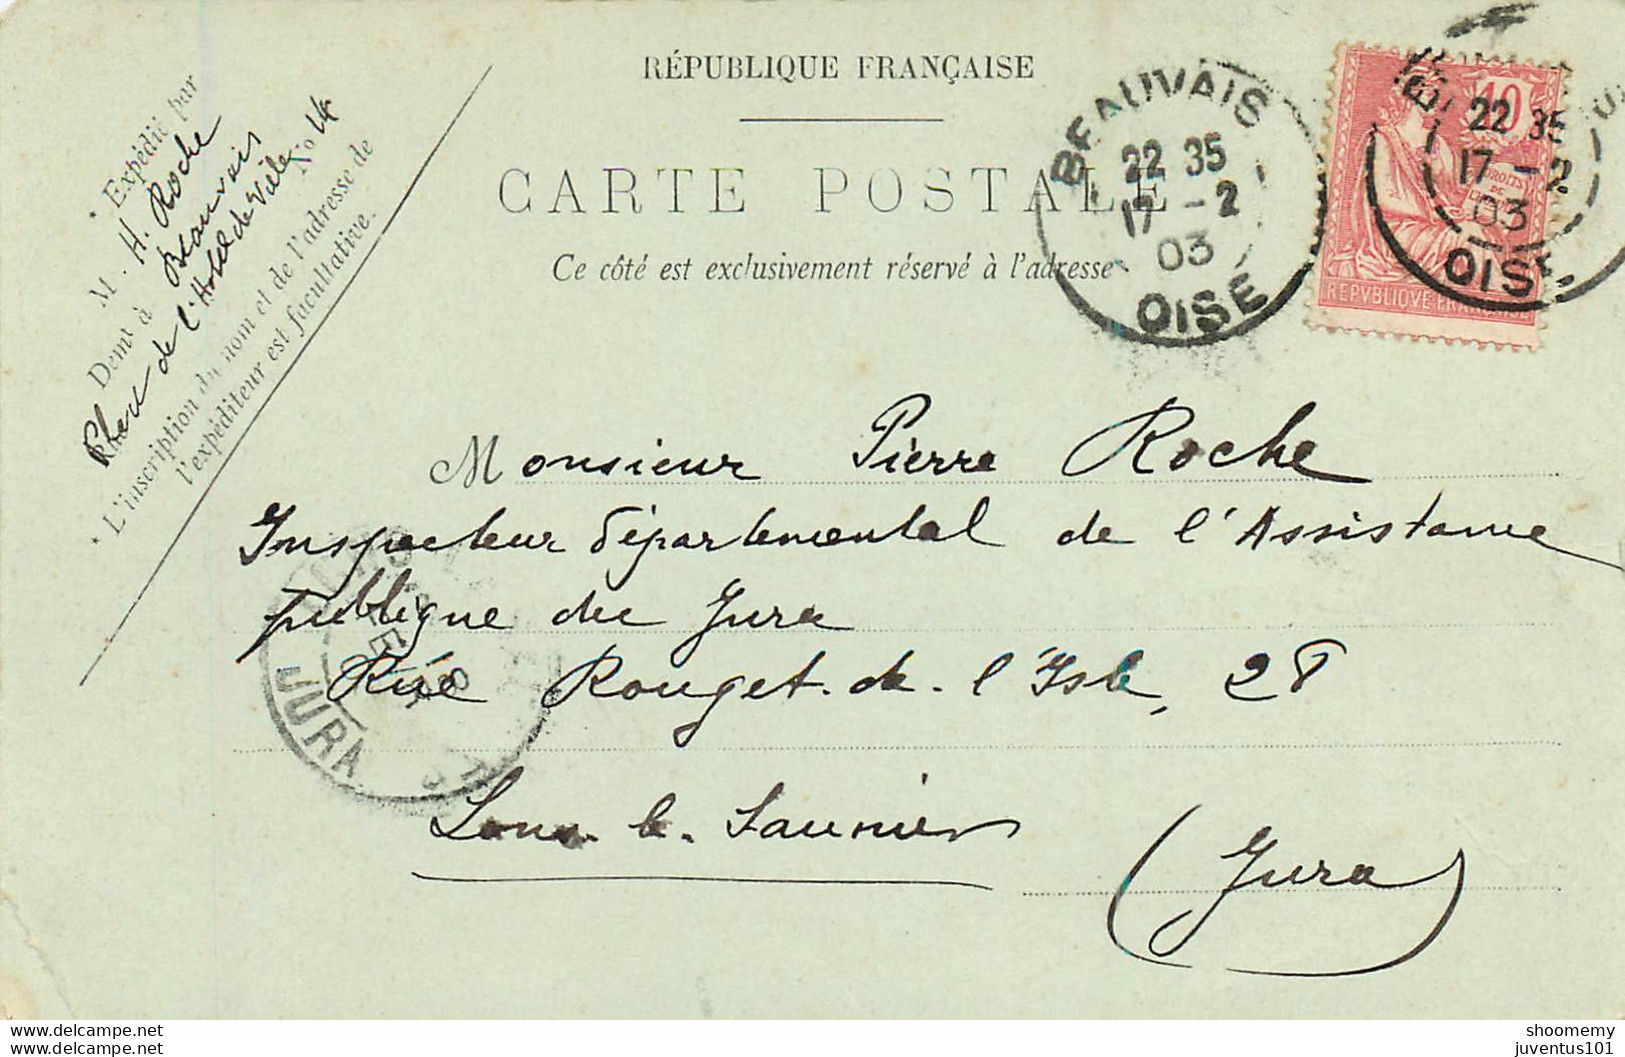 RÉPUBLIQUE FRANÇAISE
CARTE POSTALE
Ce côté est exclusivement réservé à l'adresse
* Expédié par
M. H. Roche
Demt à Beauvais
de l'Hotel de Ville No 14
* L'inscription du nom et de l'adresse de
l'expéditeur est facultative.
BEAUVAIS
22 35
17 - 2
03
OISE
10
22 35
17 - 2
03
OISE
DROITS
DE
REPVBLIQVE FRANÇAISE
Monsieur Pierre Roche
Inspecteur départemental de l'Assistance
publique du Jura
Rue Rouget-de-l'Isle, 28
Lons-le-Saunier
(Jura)
JURA
www.delcampe.net
www.delcampe.net
shoomemy
juventus101